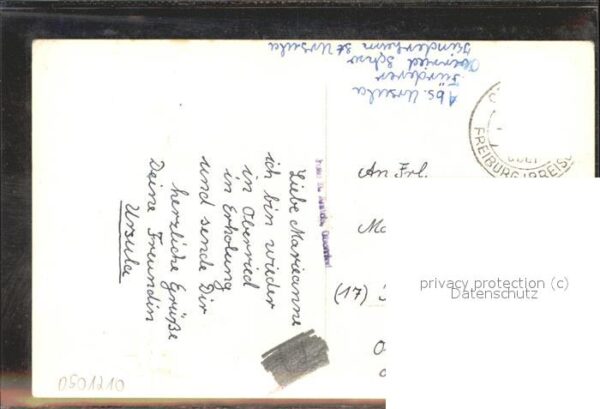 Abs. Ursula
Oberried Schw
Kinderheim St Ursula
Liebe Marianne
ich bin wieder
in Oberried
in Erholung
und sende Dir
herzliche Grüße
Deine Freundin
Ursula
An Frl.
Ma
(17)
FREIBURG (BREISG
privacy protection (c)
Datenschutz
0501210